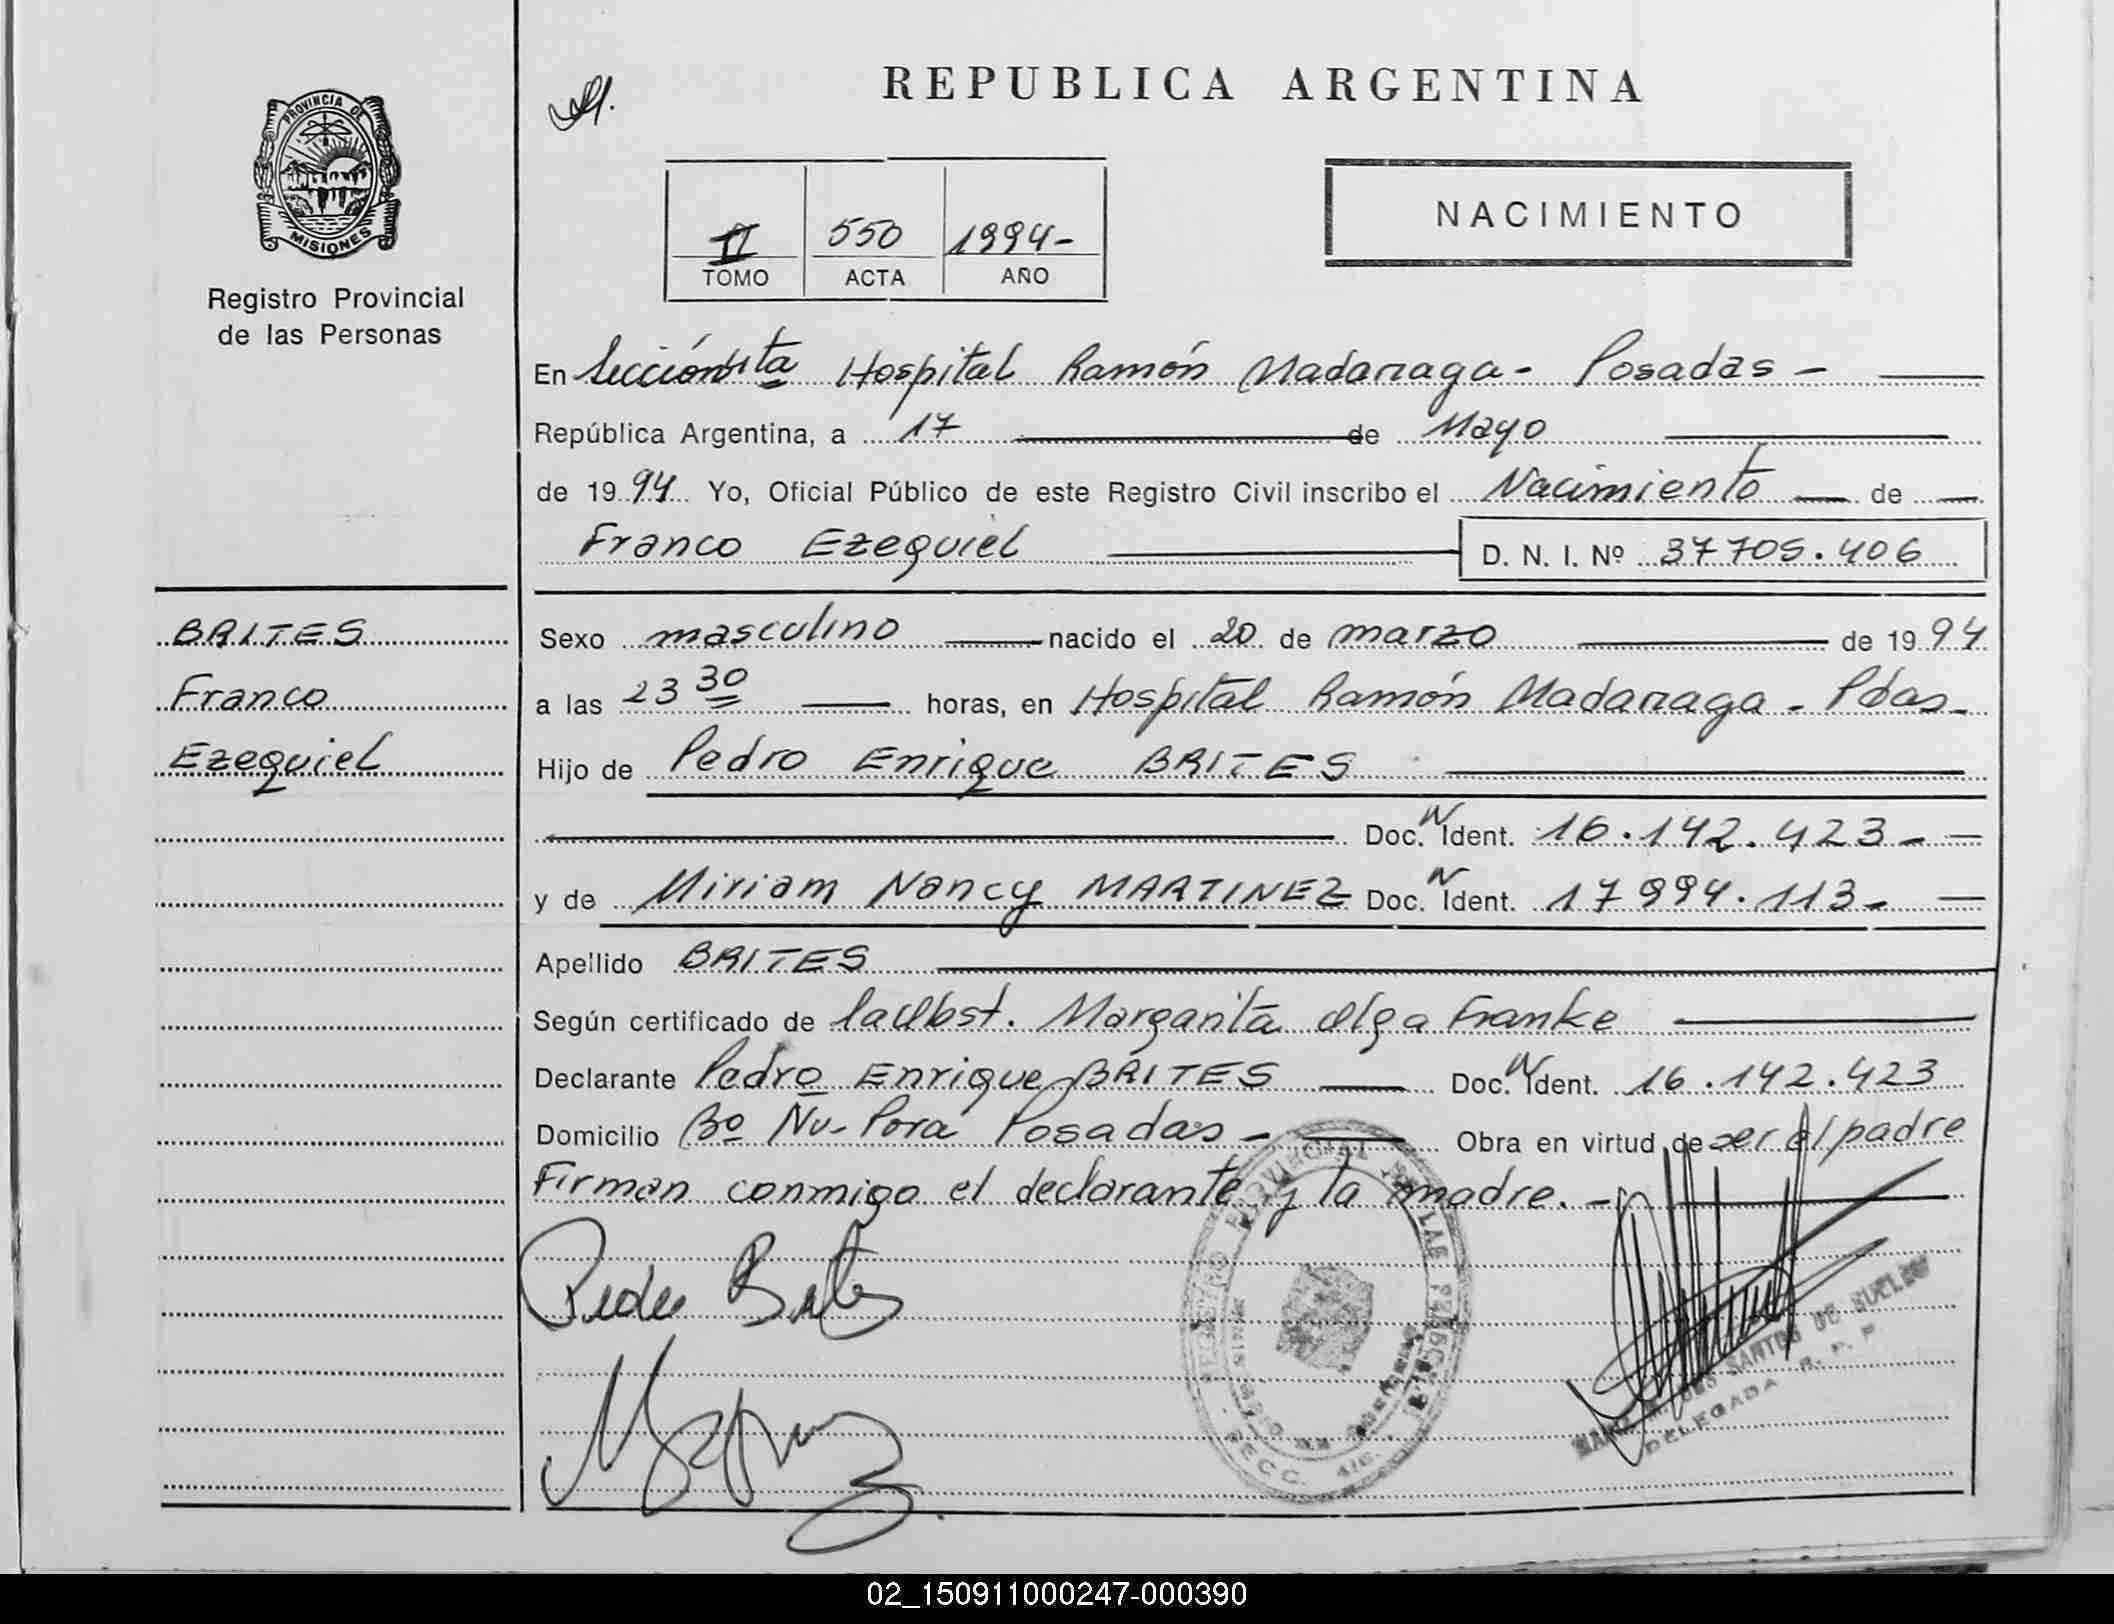 REPUBLICA ARGENTINA
PROVINCIA DE
MISIONES
Registro Provincial
de las Personas
II 550 1994-
TOMO ACTA AÑO
NACIMIENTO
En Sección 4ta Hospital Ramón Madariaga - Posadas -
República Argentina, a 17 de Mayo
de 1994 Yo, Oficial Público de este Registro Civil inscribo el Nacimiento de
Franco Ezequiel D. N. I. Nº 37705.406
BRITES
Franco
Ezequiel
Sexo masculino nacido el 20 de marzo de 1994
a las 23 30 horas, en Hospital Ramón Madariaga - Pdas-
Hijo de Pedro Enrique BRITES
Doc. N Ident. 16.142.423-
y de Miriam Nancy MARTINEZ Doc. N Ident. 17994.113-
Apellido BRITES
Según certificado de la Obst. Margarita Olga Franke
Declarante Pedro Enrique BRITES Doc. N Ident. 16.142.423
Domicilio Bº Ñu-Pora Posadas - Obra en virtud de ser el padre
Firman conmigo el declarante y la madre. -
Pedro Brites
REGISTRO PROVINCIAL DE LAS PERSONAS
SECC. 4ta.
SANTOS DE
DELEGADA R. P. P.
02_150911000247-000390